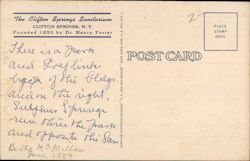 The Clifton Springs Sanitarium
CLIFTON SPRINGS, N. Y.
Founded 1850 by Dr. Henry Foster
2
PLACE
STAMP
HERE
POST CARD
There is a park
and
back of the bldgs.
and on the right.
Sulphur Springs
run thru the park
and opposite the San
Bertha McMillan
June 1953